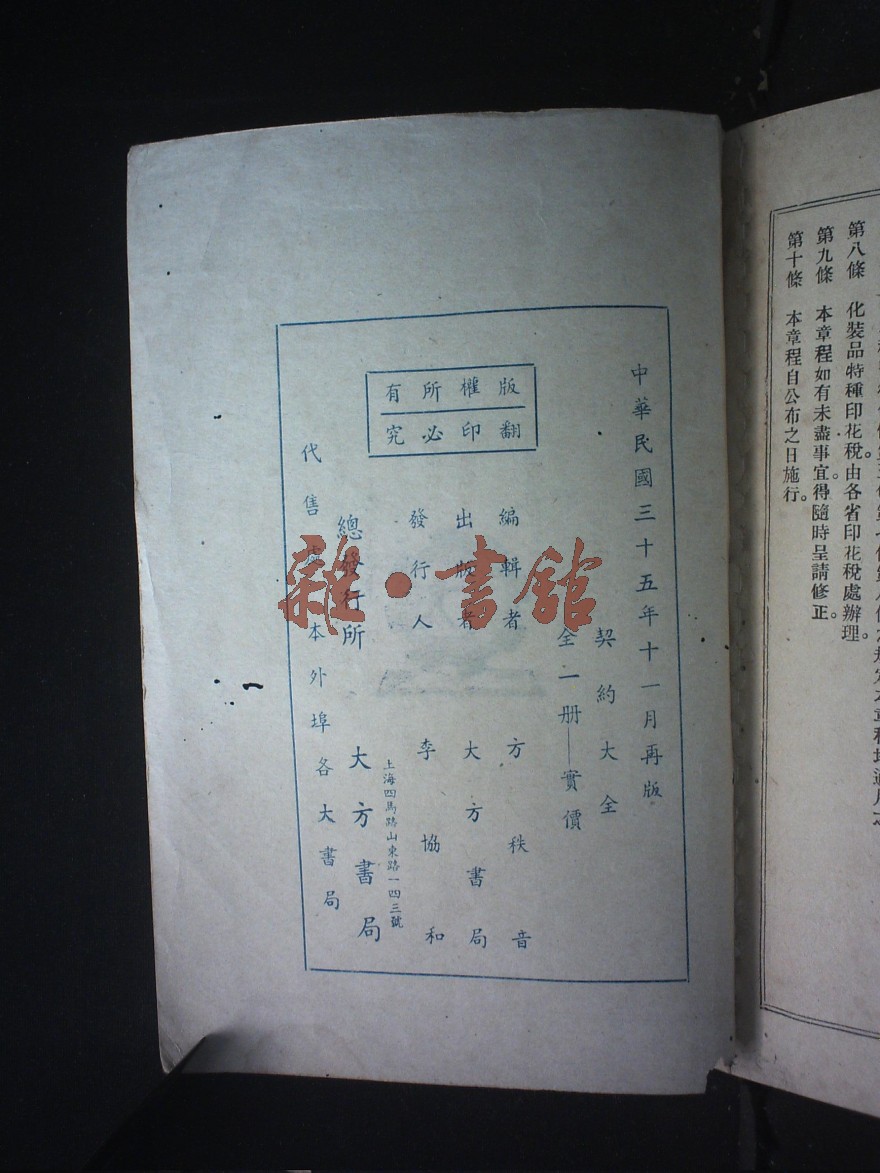 第八條　化裝品特種印花稅由各省印花稅處辦理。
第九條　本章程如有未盡事宜得隨時呈請修正。
第十條　本章程自公布之日施行。
中華民國三十五年十一月再版
契約大全
全一册——實價
版權所有
翻印必究
編輯者　方秩音
出版者　大方書局
發行人　李協和
上海四馬路山東路一四三號
總發行所　大方書局
代售處　本外埠各大書局
雜·書館